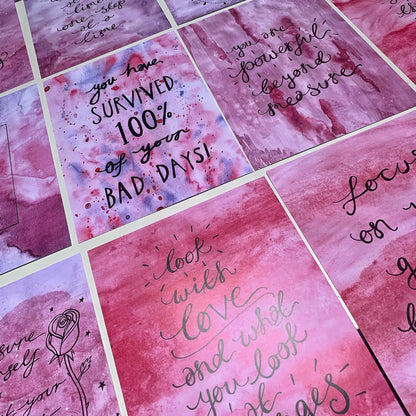 one step
at a
time
you have
SURVIVED
100%
of your
BAD DAYS!
you are
powerful
beyond
measure
look
with
LOVE
and what
you look
at
focus
on